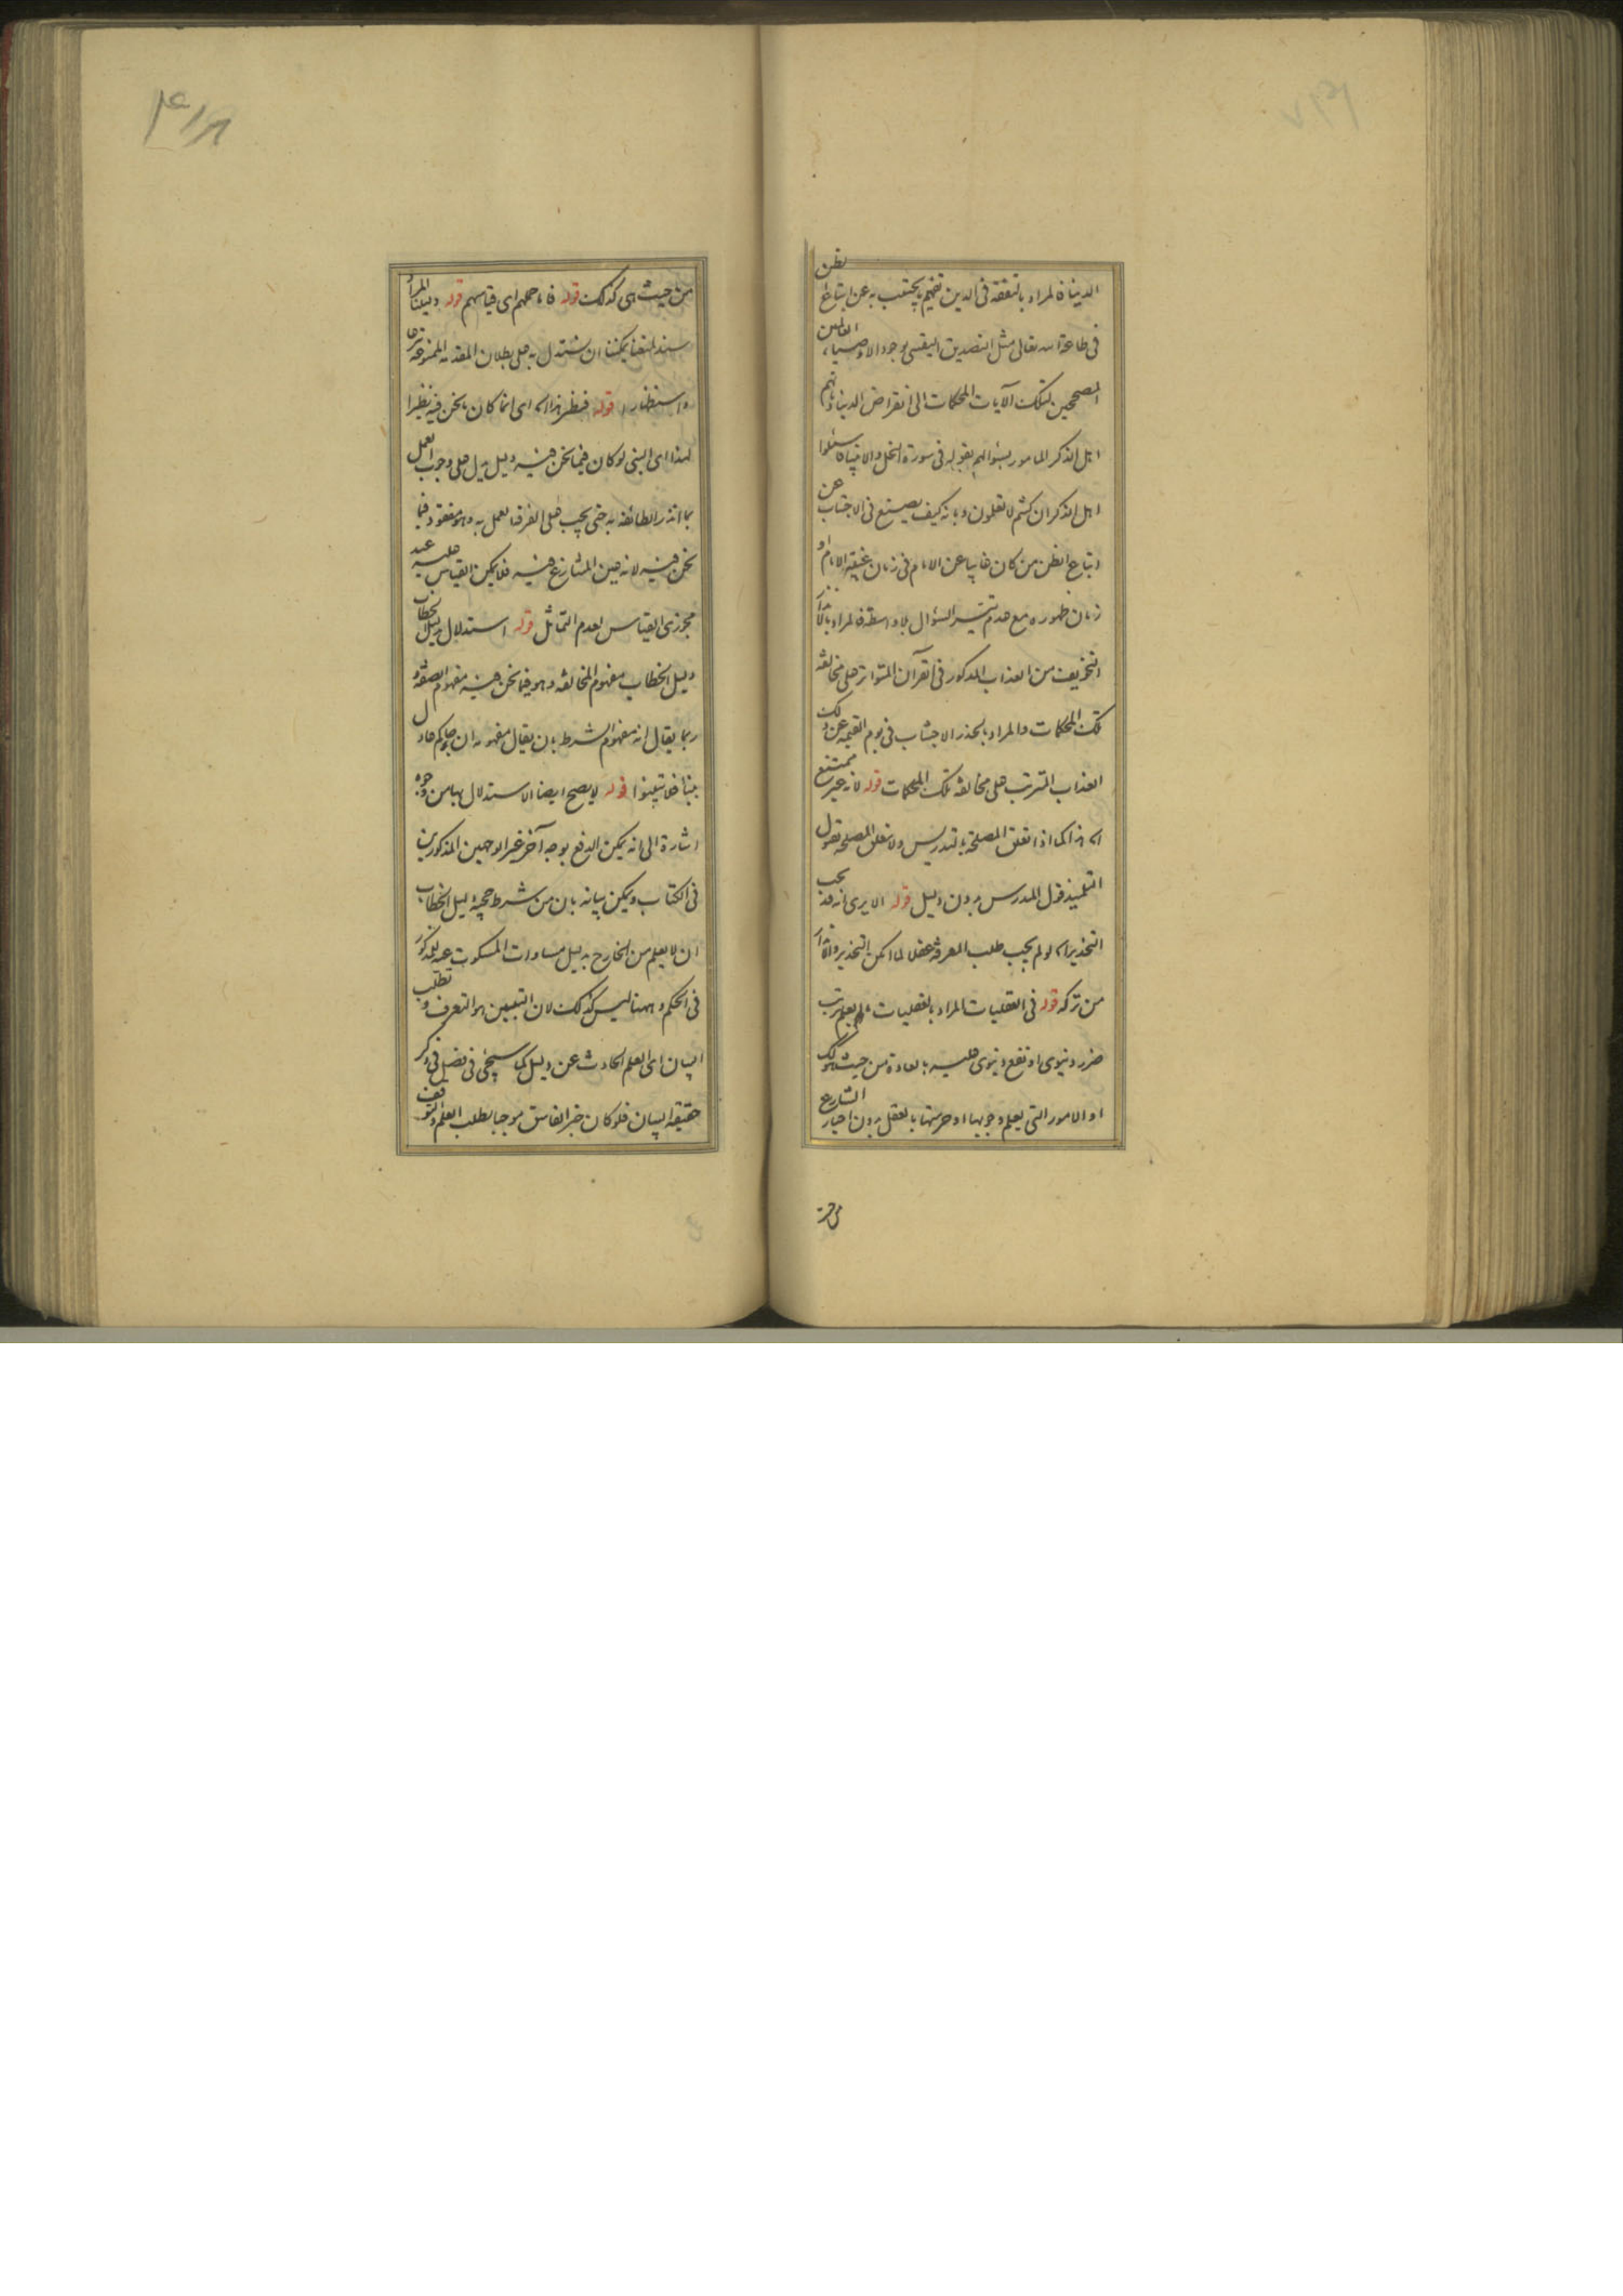 الدنیا فالمراد بالتفقه فی الدین تفهم ما یجتنب به عن اتباع الظن
فی طاعة الله تعالی مثل التصدیق الیقینی بوجود الاوصیاء العالمین
المصححین لتلک الآیات المحکمات الی انقراض الدنیا وانهم
اهل الذکر المامور بسؤالهم بقوله فی سورة النحل والانبیاء فاسئلوا
اهل الذکر ان کنتم لا تعلمون وبانه کیف یصنع فی الاجتناب عن
اتباع الظن من کان غایبا عن الامام فی زمان غیبة الامام او
زمان ظهوره مع عدم تیسر السؤال بلا واسطة فالمراد بالانذار
التخویف من العذاب المذکور فی القرآن المتواتر علی مخالفة
تلک المحکمات والمراد بالحذر الاجتناب فی یوم القیمه عن ذلک
العذاب المترتب علی مخالفة تلک المحکمات قوله لانه غیر ممتنع
اه هذا کما اذا تعلق المصلحة بتدریس ولا یتعلق المصلحة بقبول
التلمیذ قول المدرس بدون دلیل قوله الا یری انه قد یجب
التحذیر اه لو لم یجب طلب المعرفة عقلا لما امکن التحذیر والانذار
من ترکه قوله فی العقلیات المراد بالعقلیات ما لم یعلم ترتب
ضرر دنیوی او نفع دنیوی علیه بالعادة من حیث هو کذلک
او الامور التی یعلم وجوبها او حرمتها بالعقل بدون اخبار الشارع
من حیث
من حیث هی کذلک قوله فما حجتهم ای قیاسهم قوله ولیعنا المراد
سند المنع یمکننا ان نستدل به علی بطلان المقدمه الممنوعة
واستظهارا قوله فنظیر هذا اه ای انما کان ما نحن فیه نظیرا
لهذا ای النبی لو کان فیما نحن فیه دلیل یدل علی وجوب العمل
بما انذر الطائفة به حتی یجب علی الفرقة العمل به وهو مفقود فیما
نحن فیه لانه عین المتنازع فیه فلا یمکن القیاس علیه عند
مجوزی القیاس لعدم التماثل قوله استدلال بدلیل الخطاب
دلیل الخطاب مفهوم المخالفة وهو فیما نحن فیه مفهوم الصفة و
ربما یقال انه مفهوم الشرط بان یقال مفهومه ان جاءکم عادل
بنبأ فلا تتبینوا قوله لا یصح ایضا الاستدلال بها من وجوه
اشارة الی انه یمکن الدفع بوجه آخر غیر الوجهین المذکورین
فی الکتاب ویمکن بیانه بان من شرط حجیة دلیل الخطاب
ان لا یعلم من الخارج بدلیل مساوات المسکوت عنه للمذکور
فی الحکم وههنا لیس کذلک لان التبیین هو التعرف وتطلب
البیان ای العلم الحادث عن دلیل کما سیجئ فی فصل فی ذکر
حقیقة البیان فلو کان خبر الفاسق موجبا لطلب العلم والتوقف